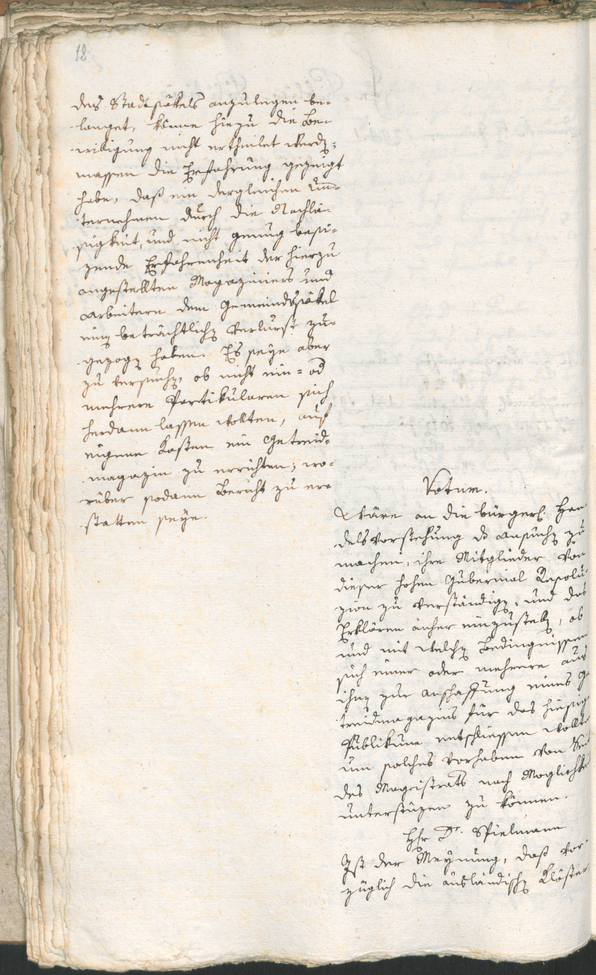 18
des Stadtsäkels anzulegen be-
langet, könne hiezu die Be-
willigung nicht ertheilet werdn:
massen die Erfahrung gezeigt
habe, daß ein dergleichen Un-
ternehmen durch die Nachläs-
sigkeit, und nicht genug besi-
zende Erfahrenheit der hierzu
angestellten Magaziniers und
Arbeitern dem Gemeindsäkel
einen beträchtlichn Verlurst zu-
gezogn haben. Es seye aber
zu versuchn, ob nicht ein- od
mehrere Partikularen sich
herdann lassen wollten, auf
eigene Kosten ein Getreid-
magazin zu errichten; wo-
rüber sodann Bericht zu er-
statten seye.
Votum.
Wäre an die bürgerl. Han
delsvorstehung das Ansuchn zu
machen, ihre Mitglieder von
dieser hohen Gubernial Resolu-
zion zu verständign, und das
Erklären anher einzustelln, ob
und mit welchn Bedingnissen
sich einer oder mehrere aus
ihnen zur Anschaffung eines Ge
treidmagazins für das hiesige
Publikum entschliessen wollte
um solches Vorhaben von Seite
des Magistrats nach Möglichkeit
unterstüzen zu können.
Hr. Dr. Spielmann
Ist der Meynung, daß vor-
züglich die ausländischn Klöster